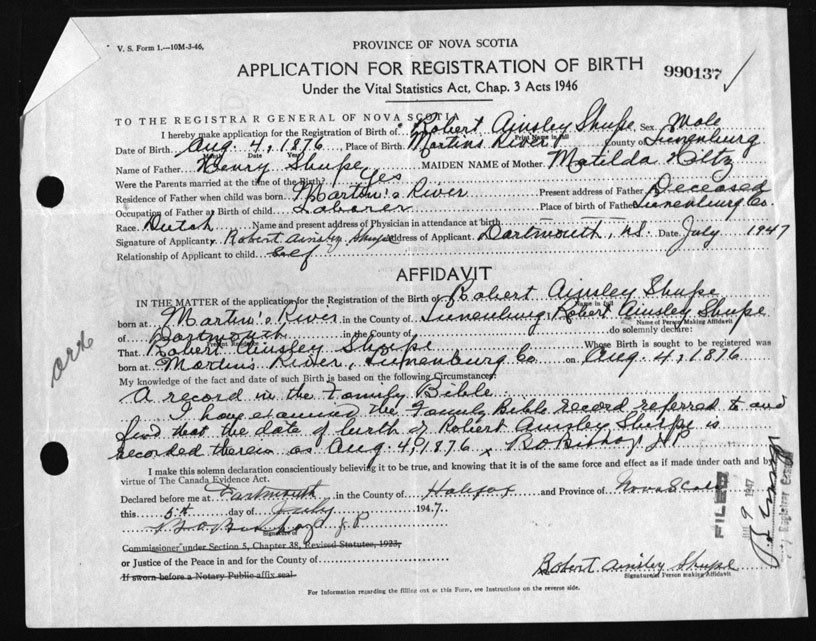 V. S. Form 1.—10M-3-46.
PROVINCE OF NOVA SCOTIA
APPLICATION FOR REGISTRATION OF BIRTH
990137
Under the Vital Statistics Act, Chap. 3 Acts 1946
TO THE REGISTRAR GENERAL OF NOVA SCOTIA
I hereby make application for the Registration of Birth of Robert Ainsley Shupe Sex Male
Print Name in full
Date of Birth Aug. 4, 1876 Place of Birth Martins River County of Lunenburg
Month Date Year
Name of Father Henry Shupe MAIDEN NAME of Mother Matilda Hiltz
Were the Parents married at the time of the Birth? Yes
Residence of Father when child was born Martin's River Present address of Father Deceased
Occupation of Father at Birth of child Laborer Place of birth of Father Lunenburg Co.
Race Dutch Name and present address of Physician in attendance at birth
Signature of Applicant Robert Ainsley Shupe Address of Applicant Dartmouth, N.S. Date July 1947
Relationship of Applicant to child Self
AFFIDAVIT
IN THE MATTER of the application for the Registration of the Birth of Robert Ainsley Shupe
Name in full
born at Martin's River in the County of Lunenburg, Robert Ainsley Shupe
Name of Person Making Affidavit
of Dartmouth in the County of do solemnly declare:
Present Residence
That Robert Ainsley Shupe Whose Birth is sought to be registered was
born at Martins River, Lunenburg Co. on Aug 4, 1876
My knowledge of the fact and date of such Birth is based on the following Circumstances:
A record in the Family Bible.
I have examined the Family Bible record referred to and
find that the date of birth of Robert Ainsley Shupe is
recorded therein as Aug. 4, 1876, B O Bishop J P
I make this solemn declaration conscientiously believing it to be true, and knowing that it is of the same force and effect as if made under oath and by
virtue of The Canada Evidence Act.
Declared before me at Dartmouth in the County of Halifax and Province of Nova Scotia
this 5th day of July 1947.
B O Bishop J.P
Signature of
Commissioner under Section 5, Chapter 38, Revised Statutes, 1923,
or Justice of the Peace in and for the County of
If sworn before a Notary Public affix seal
Robert Ainsley Shupe
Signature of Person making Affidavit
For Information regarding the filling out of this Form, see Instructions on the reverse side.
FILED
9 1947
Registrar General